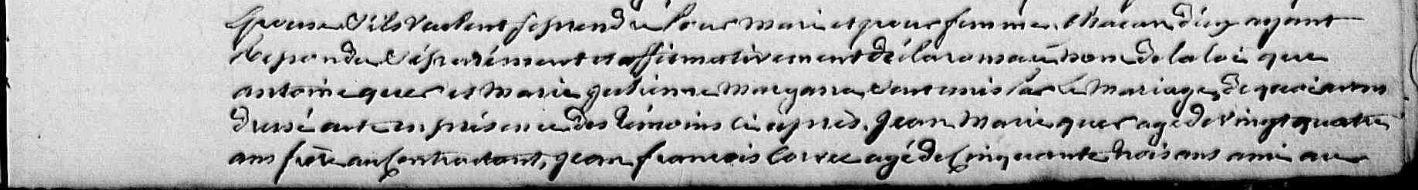 épouse s'ils veulent se prendre pour mari et pour femme. Chacun d'eux ayant
répondu séparément et affirmativement déclarons au nom de la loi que
antoine quer et Marie julienne sont unis par le Mariage, de quoi avons
dressé acte en présence des témoins ci après. Jean Marie quer agé de vingt quatre
ans frère au Contractant, jean françois agé de Cinquante trois ans ami au